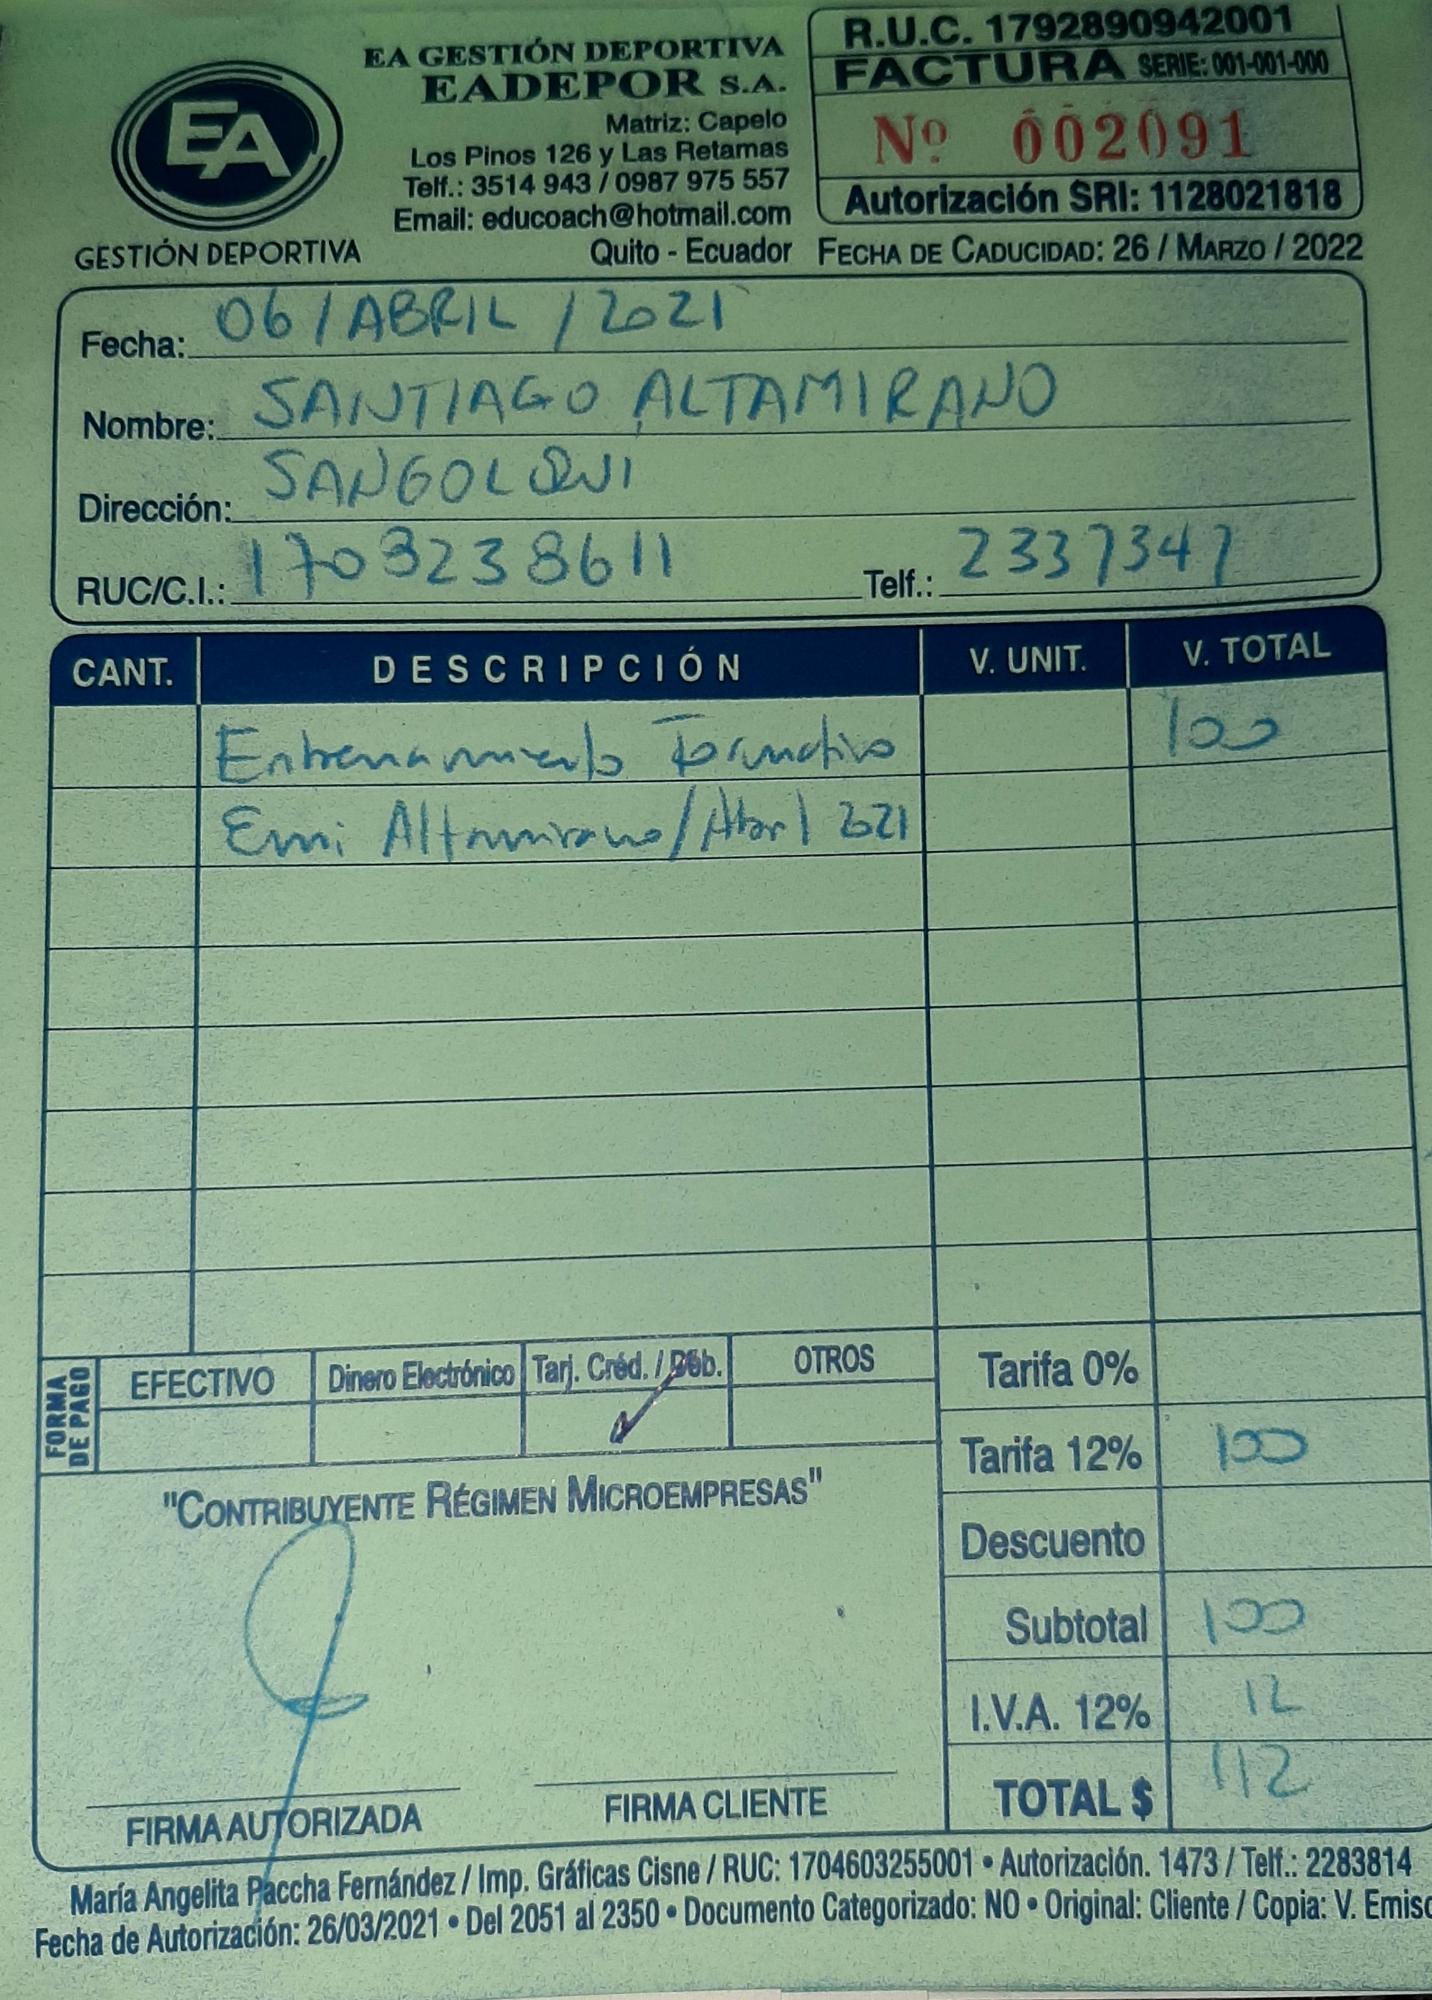 EA
GESTIÓN DEPORTIVA
EA GESTIÓN DEPORTIVA
EADEPOR S.A.
Matriz: Capelo
Los Pinos 126 y Las Retamas
Telf.: 3514 943 / 0987 975 557
Email: educoach@hotmail.com
Quito - Ecuador
R.U.C. 1792890942001
FACTURA SERIE: 001-001-000
Nº 002091
Autorización SRI: 1128021818
FECHA DE CADUCIDAD: 26 / MARZO / 2022
Fecha: 06 / ABRIL / 2021
Nombre: SANTIAGO ALTAMIRANO
Dirección: SANGOLQUI
RUC/C.I.: 1703238611 Telf.: 2337347
CANT. DESCRIPCIÓN V. UNIT. V. TOTAL
Entrenamiento Formativo 100
Emi Altamirano / Abril 2021
FORMA DE PAGO
EFECTIVO Dinero Electrónico Tarj. Créd. / Déb. OTROS
Tarifa 0%
Tarifa 12% 100
"CONTRIBUYENTE RÉGIMEN MICROEMPRESAS"
Descuento
Subtotal 100
I.V.A. 12% 12
TOTAL $ 112
FIRMA AUTORIZADA FIRMA CLIENTE
María Angelita Paccha Fernández / Imp. Gráficas Cisne / RUC: 1704603255001 • Autorización. 1473 / Telf.: 2283814
Fecha de Autorización: 26/03/2021 • Del 2051 al 2350 • Documento Categorizado: NO • Original: Cliente / Copia: V. Emiso